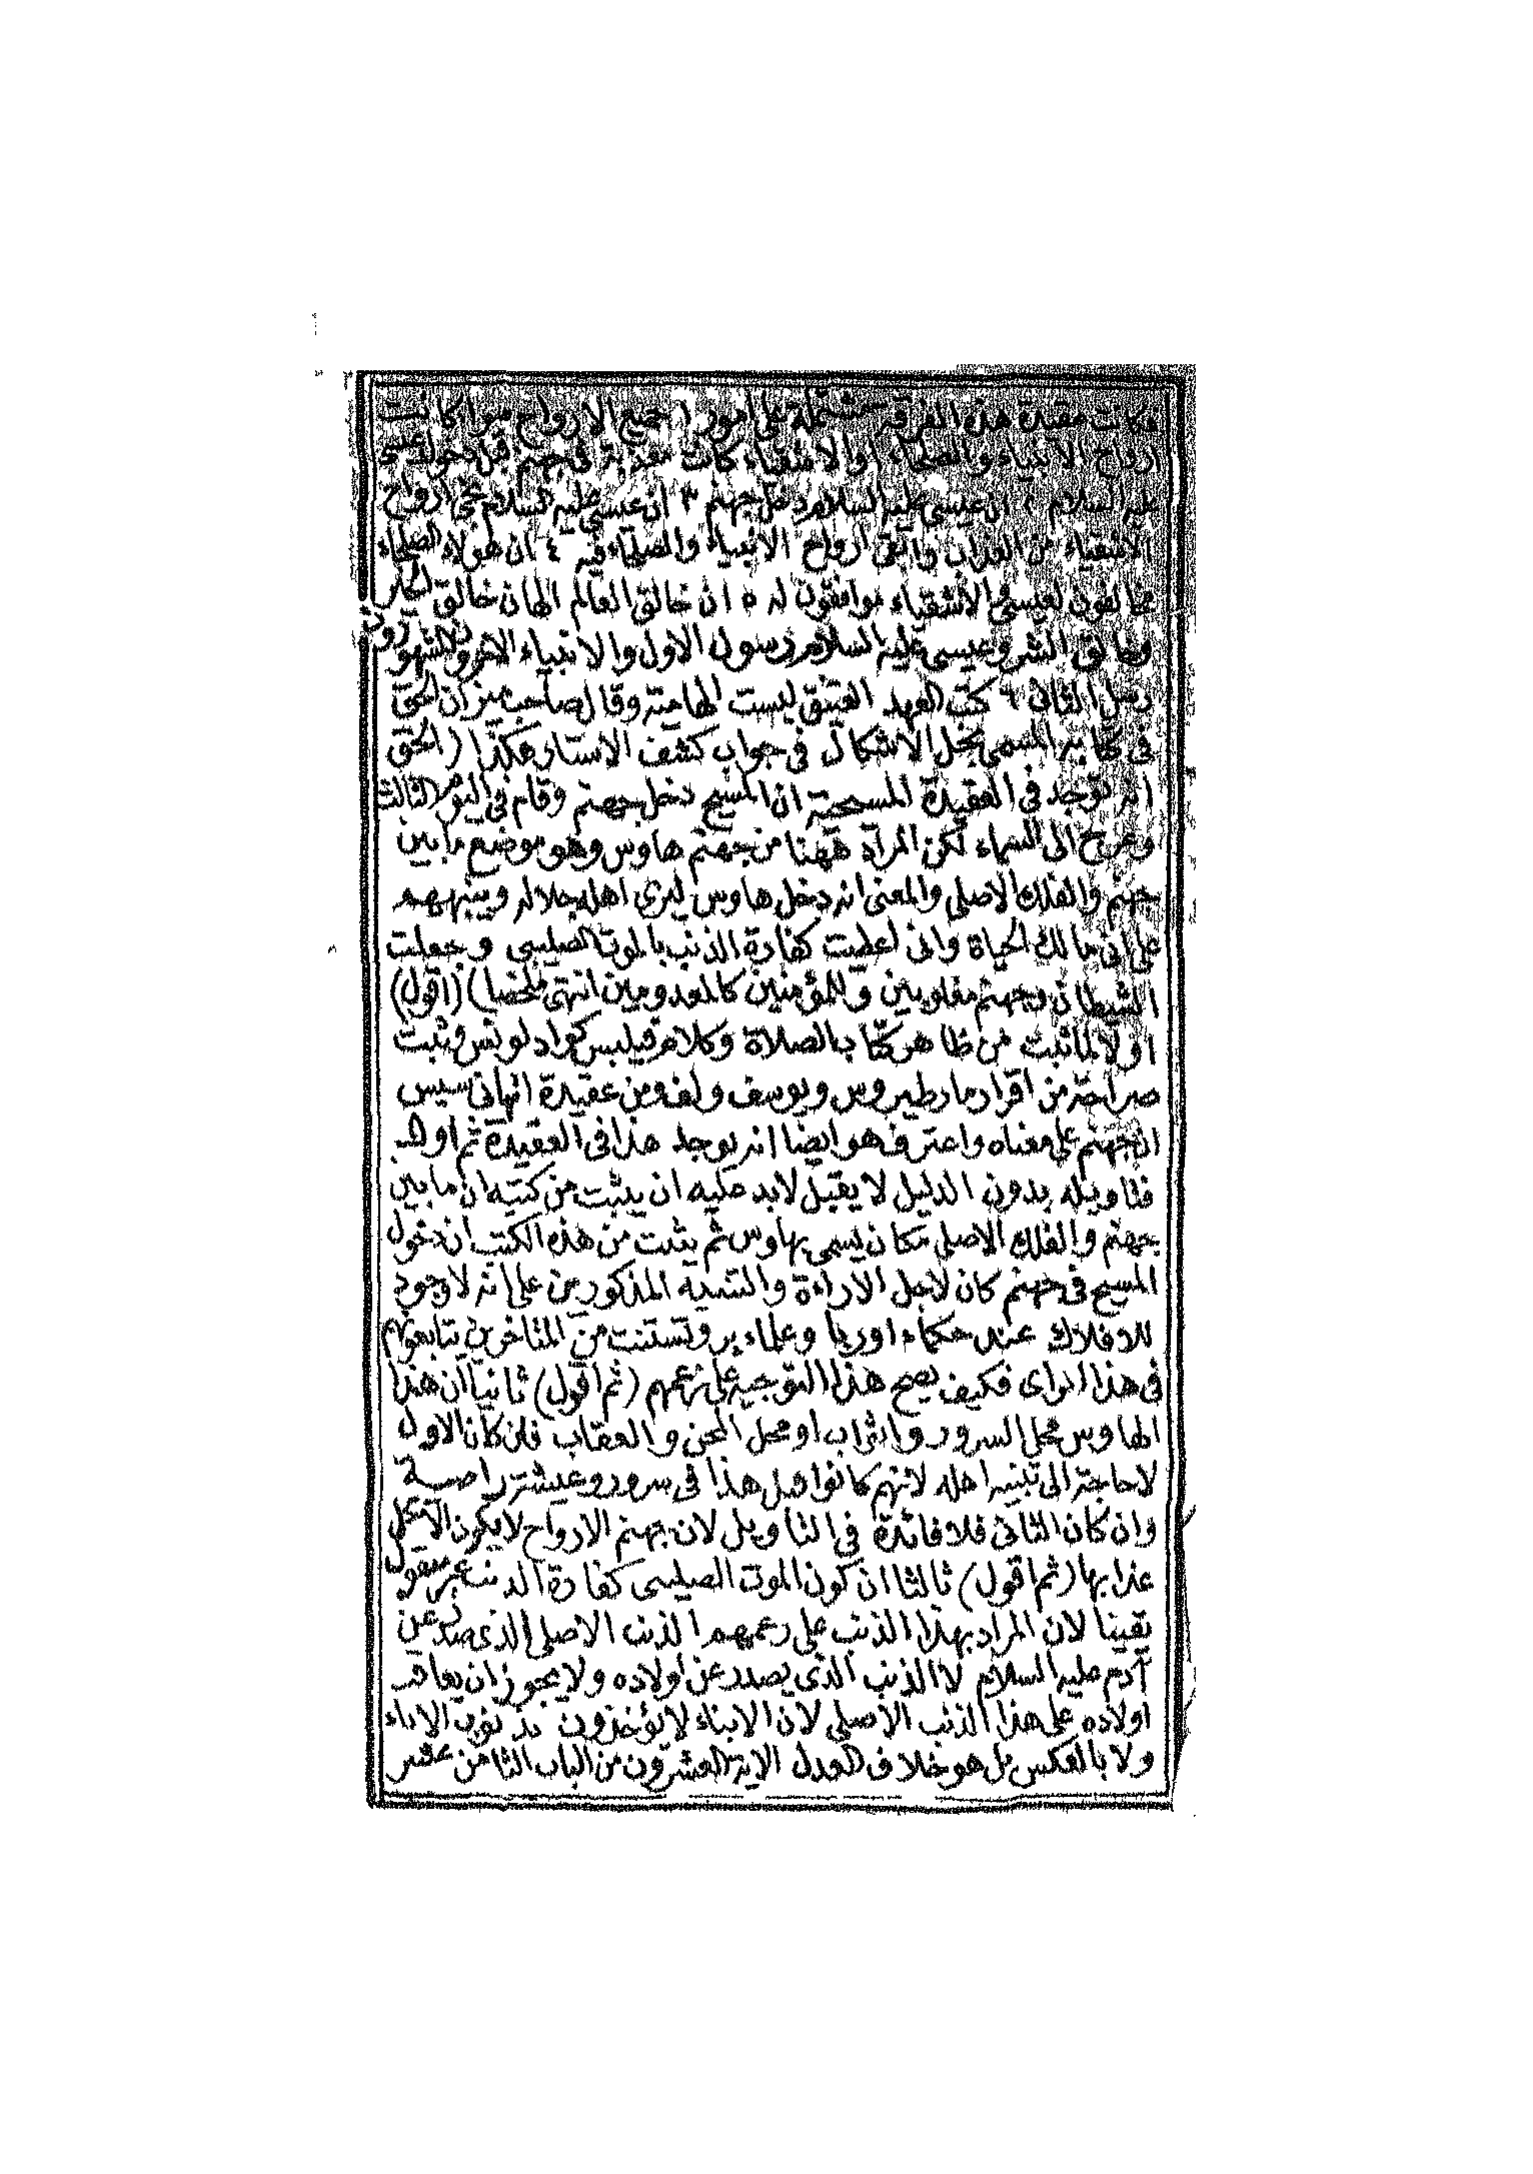 فكانت عقيدة هذه الفرقة مشتملة على امور ١ جميع الارواح سواء كانت
ارواح الانبياء والصلحاء او الاشقياء كانت معذبة فى جهنم قبل دخول عيسى
عليه السلام ٢ ان عيسى عليه السلام دخل جهنم ٣ ان عيسى عليه السلام نجى ارواح
الاشقياء من العذاب وابقى ارواح الانبياء والصلحاء فيه ٤ ان هولاء الصلحاء
مخالفون لعيسى والاشقياء موافقون له ٥ ان خالق العالم الهان خالق الخير
وخالق الشر وعيسى عليه السلام رسول الاول والانبياء الاخرون المشهورون
رسل الثانى ٦ كتب العهد العتيق ليست الهامية وقال صاحب ميزان الحق
فى كتابه المسمى بحل الاشكال فى جواب كشف الاستار هكذا (الحق
انه توجد فى العقيدة المسيحية ان المسيح دخل جهنم وقام فى اليوم الثالث
وعرج الى السماء لكن المراد ههنا من جهنم هاوس وهو موضع ما بين
جهنم والفلك الاصلى والمعنى انه دخل هاوس ليرى اهله جلاله وينبههم
على انى مالك الحياة وانى اعطيت كفارة الذنب بالموت الصليبى وجعلت
الشيطان وجهنم مغلوبين وللمؤمنين كالمعدومين انتهى ملخصا) (اقول)
اولا لما ثبت من ظاهر كتاب الصلاة وكلام فيلبس كوادلونس وثبت
صراحة من اقرار مارطيروس ويوسف ولف ومن عقيدة اتهانى سيس
ان جهنم على معناه واعترف هو ايضا انه يوجد هذا فى العقيدة ثم اوله
فتاويله بدون الدليل لا يقبل لابد عليه ان يثبت من كتبه ان ما بين
جهنم والفلك الاصلى مكان يسمى بهاوس ثم يثبت من هذه الكتب ان دخول
المسيح فى جهنم كان لاجل الاراءة والتنبيه المذكورين على انه لا وجود
للافلاك عند حكماء اوربا وعلماء بروتستنت من المتاخرين يتابعونهم
فى هذا الراى فكيف يصح هذا التوجيه على زعمهم (ثم اقول) ثانيا ان هذا
الهاوس محل السرور والثواب او محل المحن والعقاب فان كان الاول
لا حاجة الى تنبيه اهله لانهم كانوا قبل هذا فى سرور وعيشة راضية
وان كان الثانى فلا فائدة فى التاويل لان جهنم الارواح لا يكون الا محل
عذابها (ثم اقول) ثالثا ان كون الموت الصليبى كفارة الذنب غير معقول
يقينا لان المراد بهذا الذنب على زعمهم الذنب الاصلى الذى صدر عن
آدم عليه السلام لا الذنب الذى يصدر عن اولاده ولا يجوز ان يعاقب
اولاده على هذا الذنب الاصلى لان الابناء لا يؤخذون بذنوب الاباء
ولا بالعكس بل هو خلاف العدل الاية العشرون من الباب الثامن عشر